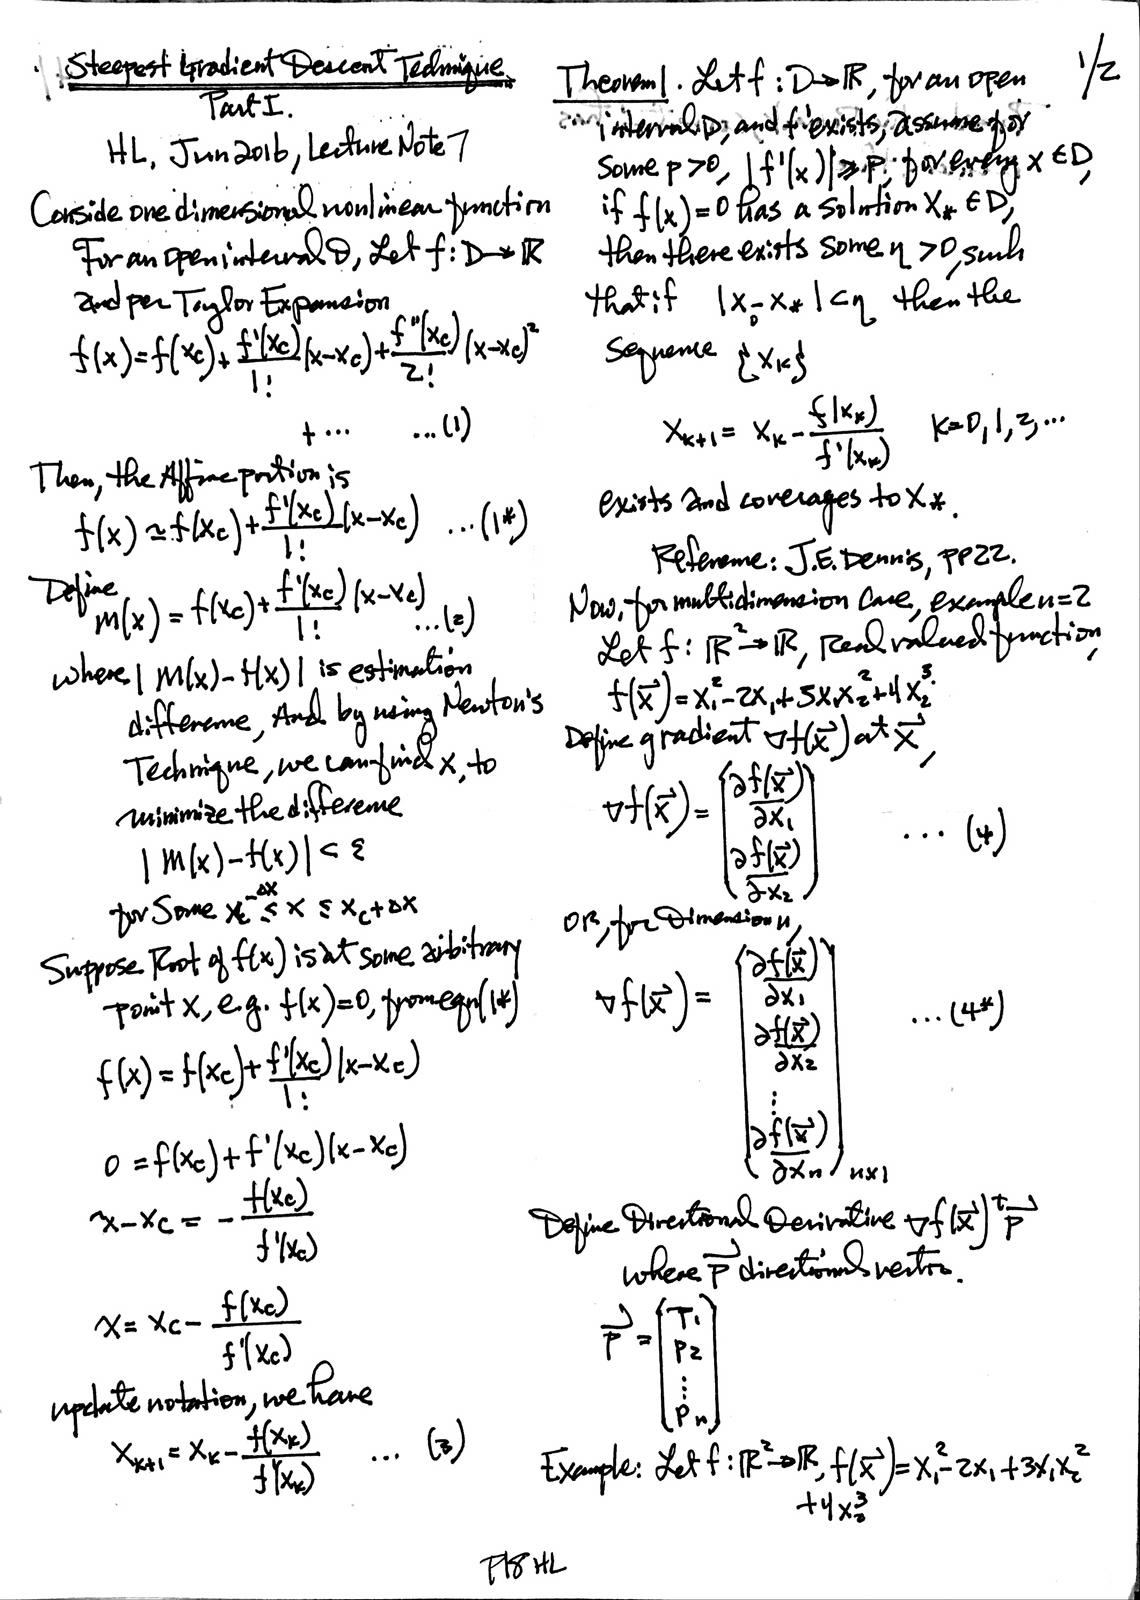 Steepest Gradient Descent Technique
Part I.
HL, Jun 2016, Lecture Note 7
Conside one dimensional nonlinear function
For an open interval D, Let f : D → ℝ
and per Taylor Expansion
f(x) = f(xc) + f'(xc)/1! (x-xc) + f''(xc)/2! (x-xc)²
+ ... ...(1)
Then, the Affine portion is
f(x) ≃ f(xc) + f'(xc)/1! (x-xc) ...(1*)
Define
m(x) = f(xc) + f'(xc)/1! (x-xc) ...(2)
where | m(x) - f(x) | is estimation
difference, And by using Newton's
Technique, we can find x, to
minimize the difference
| m(x) - f(x) | < ε
for some xc-Δx ≤ x ≤ xc+Δx
Suppose Root of f(x) is at some arbitrary
point x, e.g. f(x)=0, from eqn(1*)
f(x) = f(xc) + f'(xc)/1! (x-xc)
0 = f(xc) + f'(xc)(x-xc)
x-xc = - f(xc)/f'(xc)
x = xc - f(xc)/f'(xc)
update notation, we have
xk+1 = xk - f(xk)/f'(xk) ... (3)
1/2
Theorem 1. Let f : D → ℝ, for an open
interval D, and f' exists, assume for
some p >0, |f'(x)| ≥ p, for every x ∈ D,
if f(x) = 0 has a solution x* ∈ D,
then there exists some η >0, such
that if |x0 - x*| < η then the
sequence {xk}
xk+1 = xk - f(xk)/f'(xk) k=0,1,2,...
exists and coverages to x*.
Reference: J.E. Dennis, pp22.
Now, for multidimension case, example n=2
Let f : ℝ² → ℝ, Real valued function,
f(x⃗) = x1² - 2x1 + 3x1x2² + 4x2³
Define gradient ∇f(x⃗) at x⃗,
∇f(x⃗) = ( ∂f(x⃗)/∂x1
∂f(x⃗)/∂x2 ) ... (4)
OR, for Dimension n,
∇f(x⃗) = ( ∂f(x⃗)/∂x1
∂f(x⃗)/∂x2
⋮
∂f(x⃗)/∂xn ) n×1 ...(4*)
Define Directional Derivative ∇f(x⃗)ᵗ p⃗
where p⃗ directional vector.
p⃗ = ( P1
P2
⋮
Pn )
Example: Let f : ℝ² → ℝ, f(x⃗) = x1² - 2x1 + 3x1x2²
+ 4x2³
P18 HL